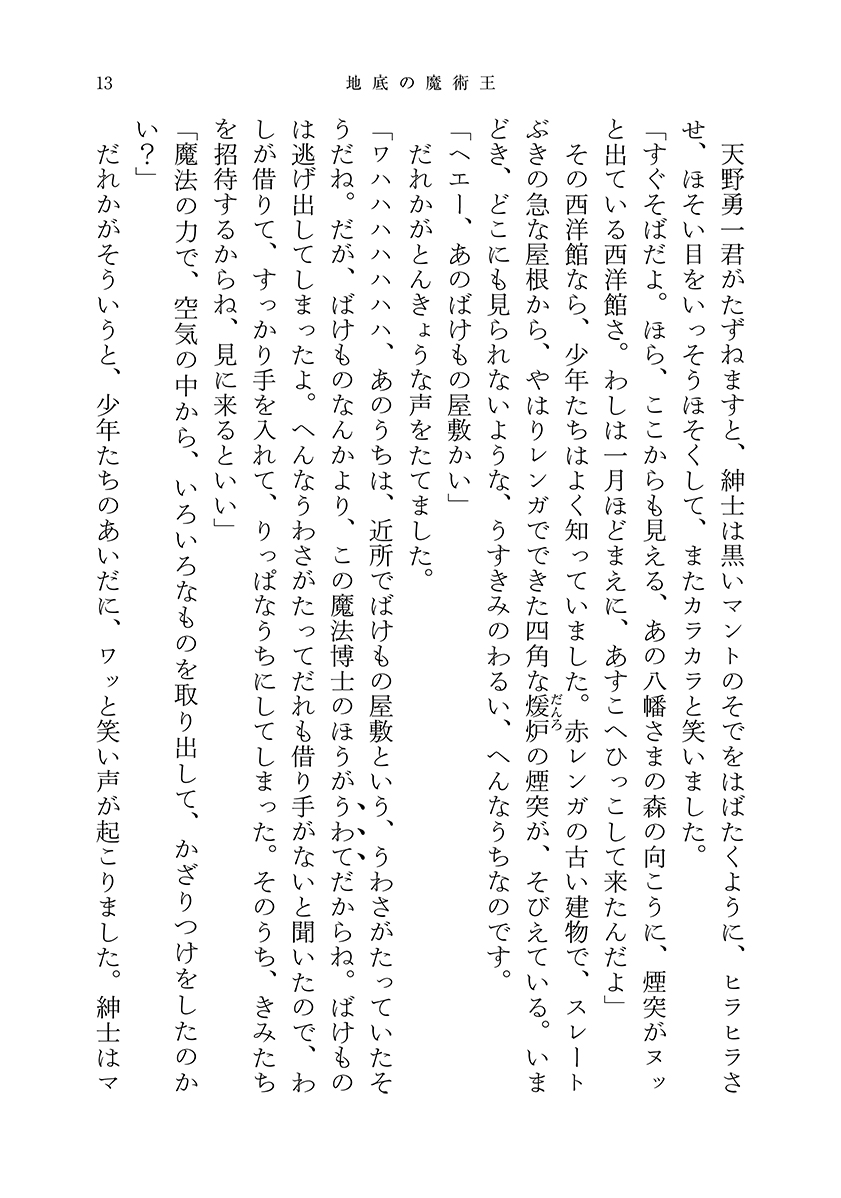 13
地底の魔術王
天野勇一君がたずねますと、紳士は黒いマントのそでをはばたくように、ヒラヒラさ
せ、ほそい目をいっそうほそくして、またカラカラと笑いました。
「すぐそばだよ。ほら、ここからも見える、あの八幡さまの森の向こうに、煙突がヌッ
と出ている西洋館さ。わしは一月ほどまえに、あすこへひっこして来たんだよ」
その西洋館なら、少年たちはよく知っていました。赤レンガの古い建物で、スレート
ぶきの急な屋根から、やはりレンガでできた四角な煖炉だんろの煙突が、そびえている。いま
どき、どこにも見られないような、うすきみのわるい、へんなうちなのです。
「ヘエー、あのばけもの屋敷かい」
だれかがとんきょうな声をたてました。
「ワハハハハハハハ、あのうちは、近所でばけもの屋敷という、うわさがたっていたそ
うだね。だが、ばけものなんかより、この魔法博士のほうがうわてだからね。ばけもの
は逃げ出してしまったよ。へんなうわさがたってだれも借り手がないと聞いたので、わ
しが借りて、すっかり手を入れて、りっぱなうちにしてしまった。そのうち、きみたち
を招待するからね、見に来るといい」
「魔法の力で、空気の中から、いろいろなものを取り出して、かざりつけをしたのか
い？」
だれかがそういうと、少年たちのあいだに、ワッと笑い声が起こりました。紳士はマ